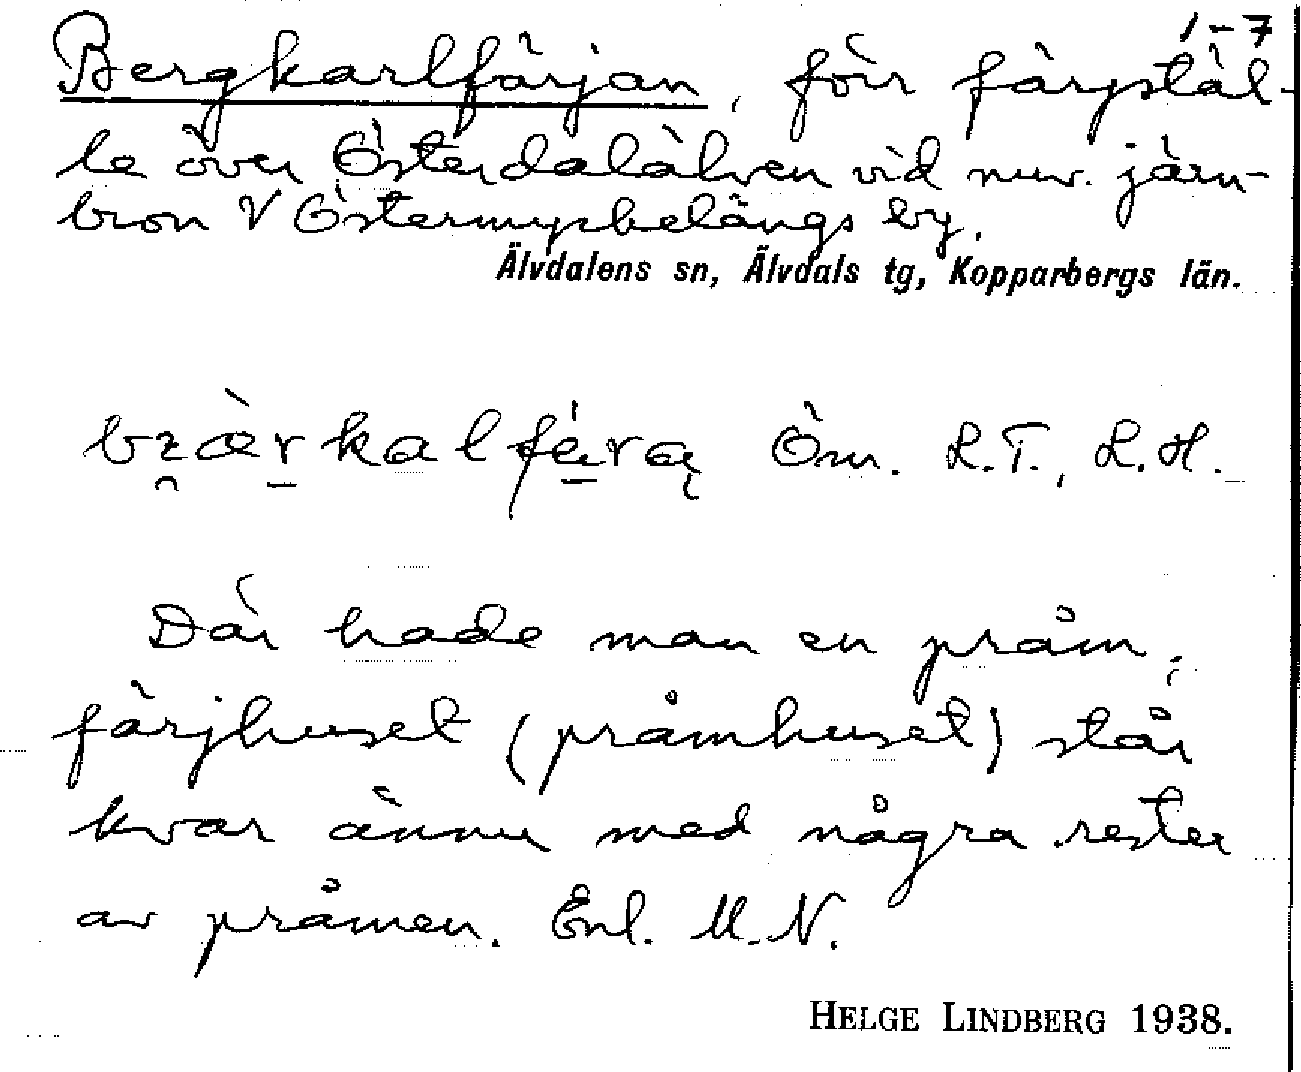 1-7
Bergkarlfärjan, förr färjstäl-
le över Österdalälven vid nuv. järn-
bron V Östermyckelängs by.
Älvdalens sn, Älvdals tg, Kopparbergs län.
Öm. L.T., L.H.
Där hade man en pråm;
färjhuset (pråmhuset) står
kvar ännu med några rester
av pråmen. Enl. M.N.
HELGE LINDBERG 1938.